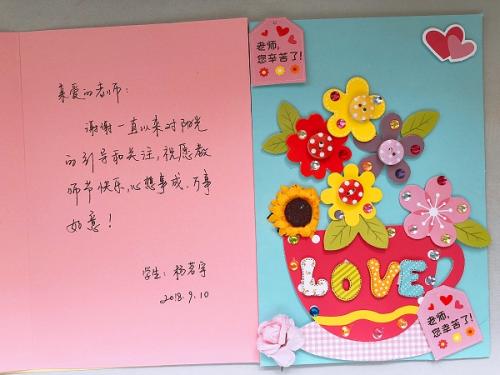 亲爱的老师：
谢谢一直以来对阳光
的引导和关注，祝愿教
师节快乐，心想事成、万事
如意！
学生：杨茗宇
2018.9.10
老师，
您辛苦了！
LOVE
老师，
您辛苦了！